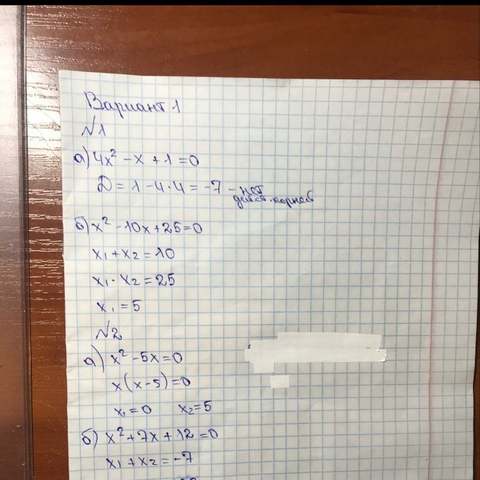 Вариант 1
№1
а) 4x² - x + 1 = 0
D = 1 - 4·4 = -7 - нет
действ. корней
б) x² - 10x + 25 = 0
x₁ + x₂ = 10
x₁ · x₂ = 25
x₁ = 5
№2
а) x² - 5x = 0
x(x - 5) = 0
x₁ = 0 x₂ = 5
б) x² + 7x + 12 = 0
x₁ + x₂ = -7